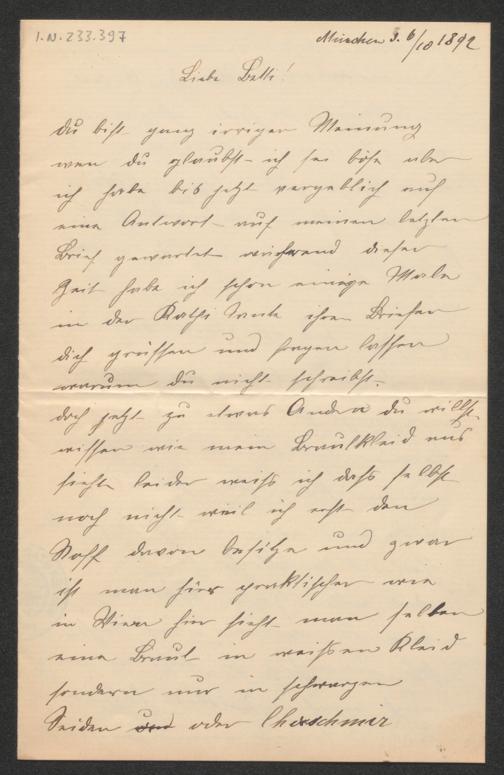 I.N. 233.397
München d. 6/10 1892
Liebe Betti!
du bist ganz irriger Meinung
wen du glaubst ich sei böse aber
ich habe bis jetzt vergeblich auf
eine Antwort auf meinen letzten
Brief gewartet während dieser
Zeit habe ich schon einige Male
in der Kathi Tante ihren Briefen
dich grüssen und fragen lassen
warum du nicht schreibst.
doch jetzt zu etwas Andern du willst
wissen wie mein Brautkleid aus
sieht leider weiß ich daß selbst
noch nicht weil ich erst den
Stoff davon besitze und zwar
ist man hier praktischer wie
in Wien hier sieht man selten
eine Braut in weißen Kleid
sondern nur in schwarzen
Seiden und oder Chaschmir